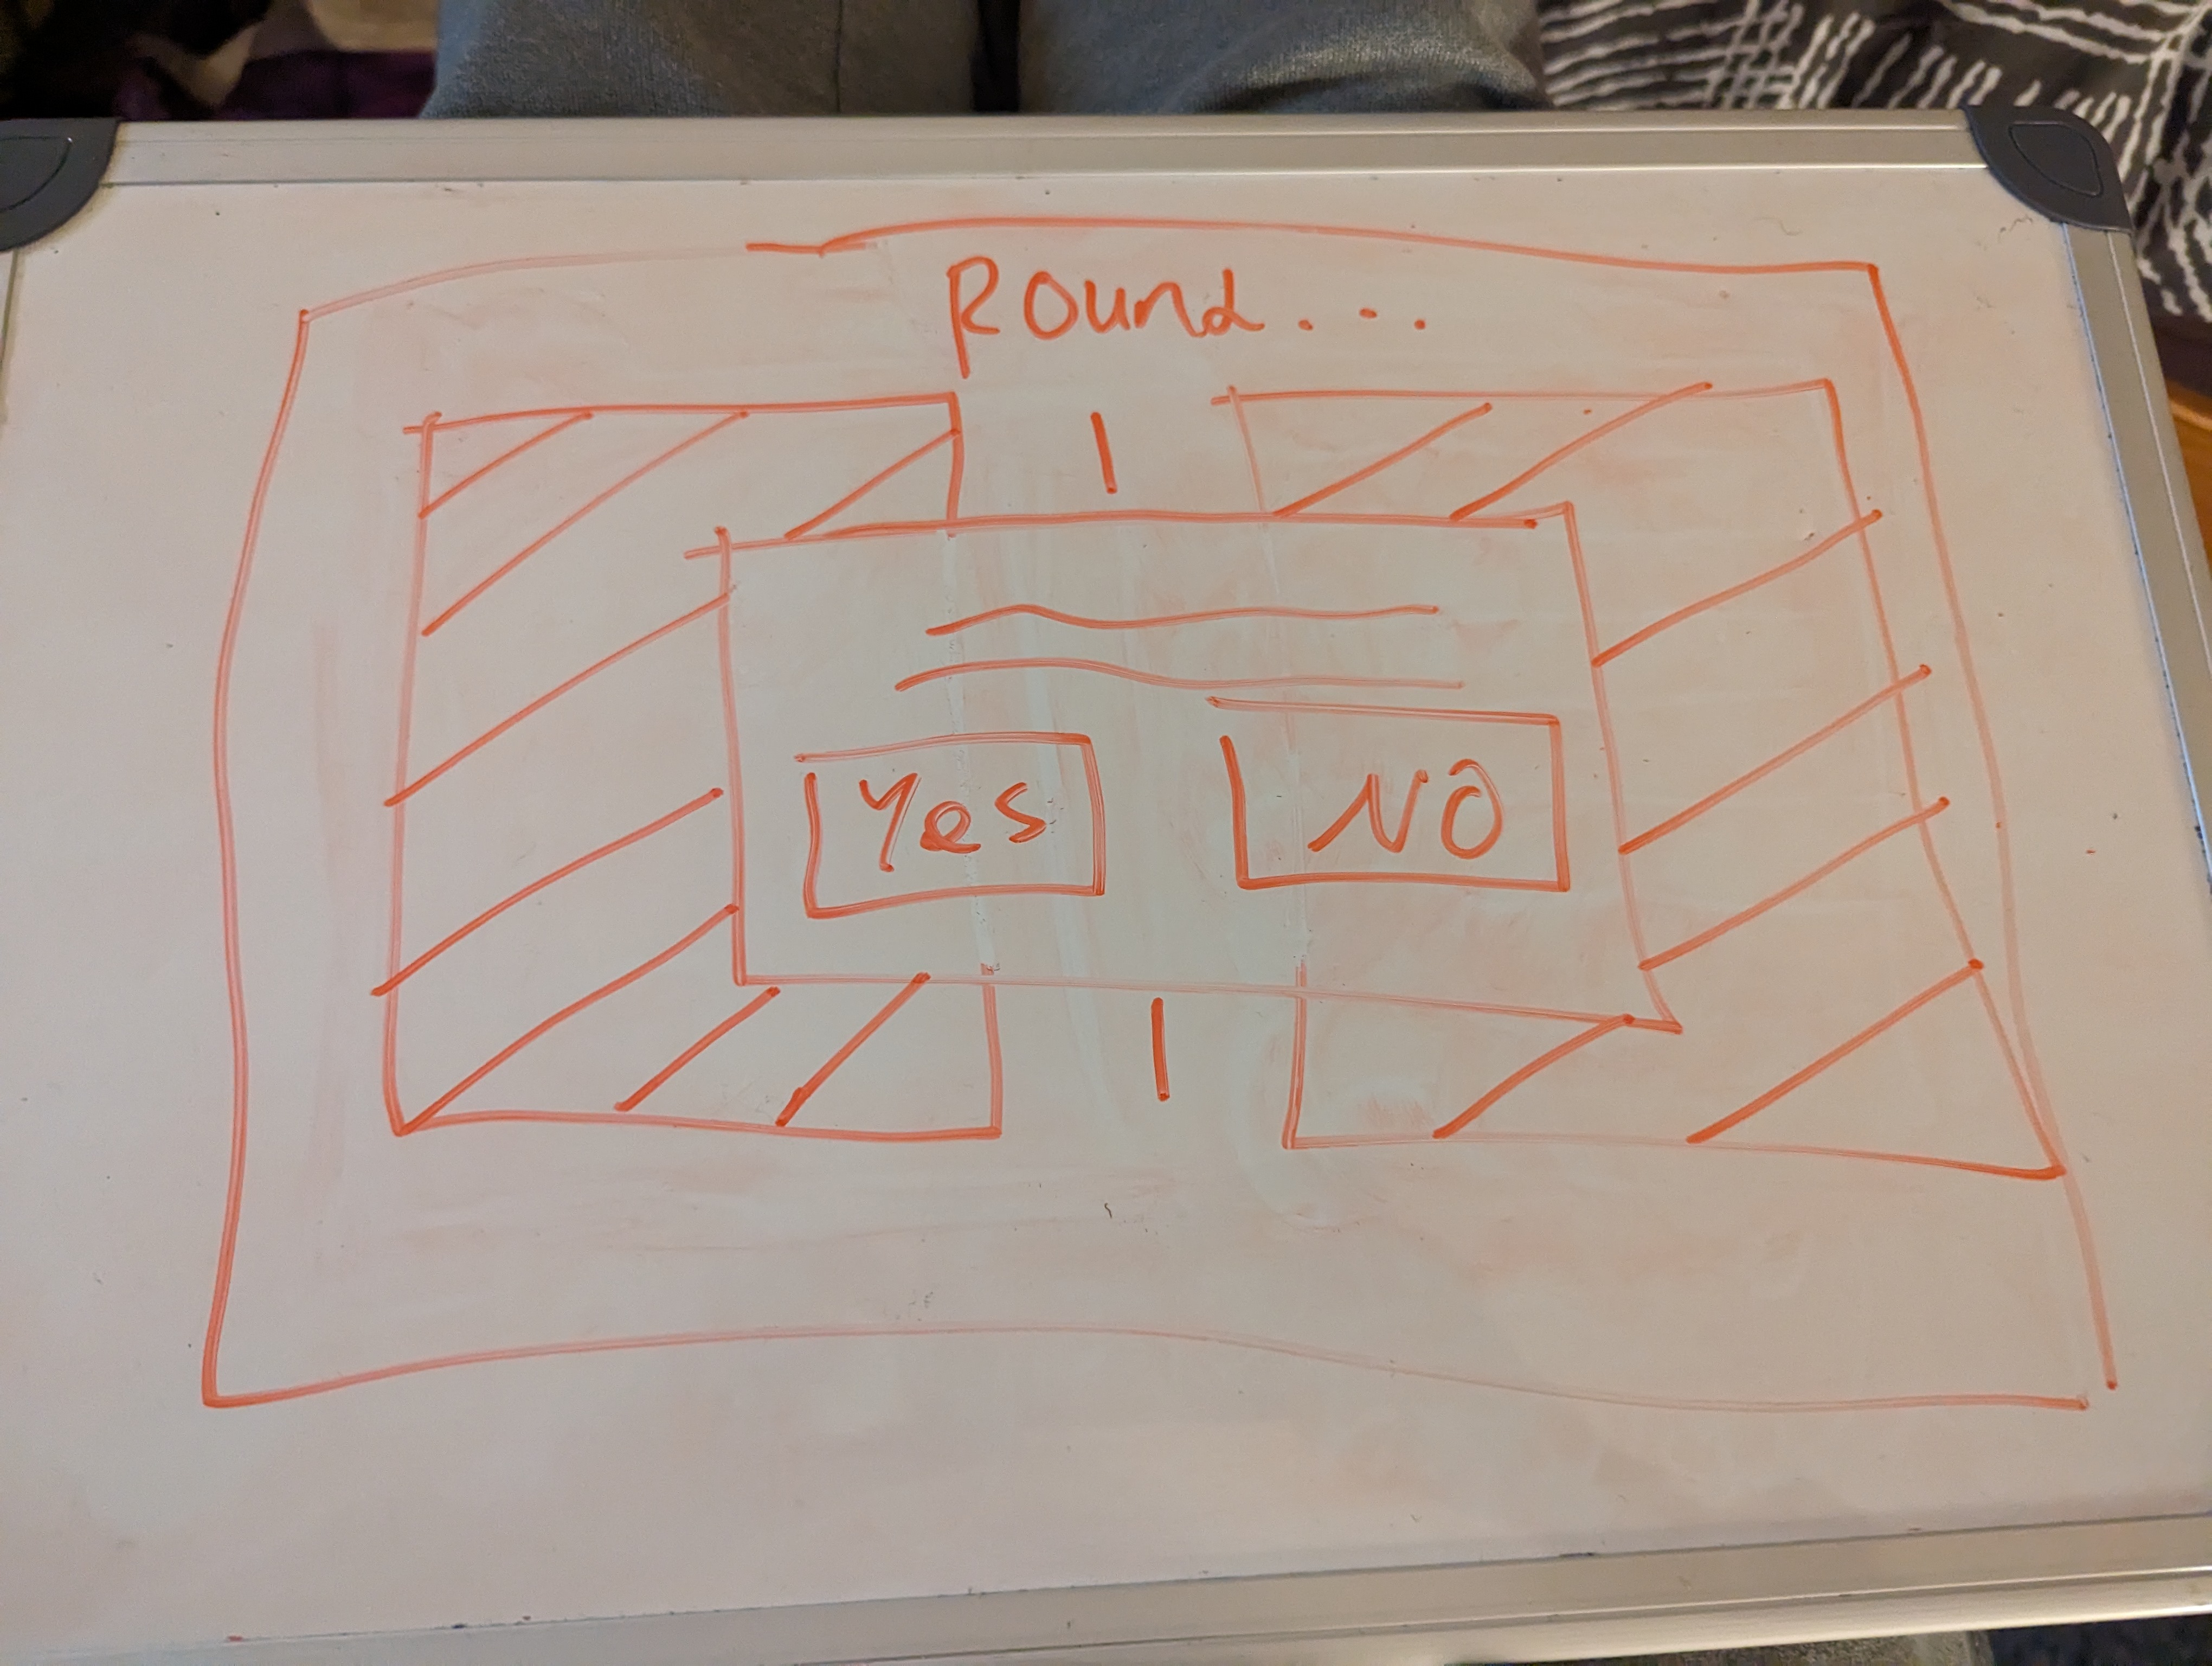 Round...
Yes
No